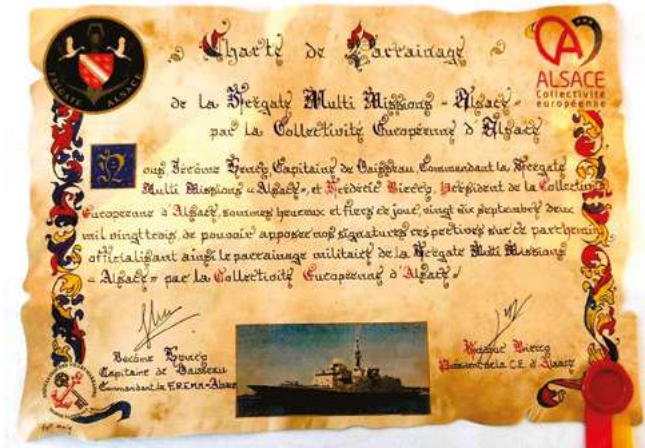 FRÉGATE ALSACE
Charte de Parrainage
ALSACE
Collectivité
européenne
de la Frégate Multi Missions - Alsace -
par la Collectivité Européenne d'Alsace
Nous Jérôme Capitaine de Vaisseau, Commandant la Frégate
Multi Missions « Alsace », et Frédéric Bierry, Président de la Collectivité
Européenne d'Alsace, sommes heureux et fiers ce jour, vingt six septembre deux
mil vingt trois, de pouvoir apposer nos signatures respectives sur ce parchemin
officialisant ainsi le parrainage militaire de la Frégate Multi Missions
« Alsace » par la Collectivité Européenne d'Alsace
Capitaine de Vaisseau
Commandant la F.RE.M.M-Alsace
Bierry
Président de la C.E. d'Alsace